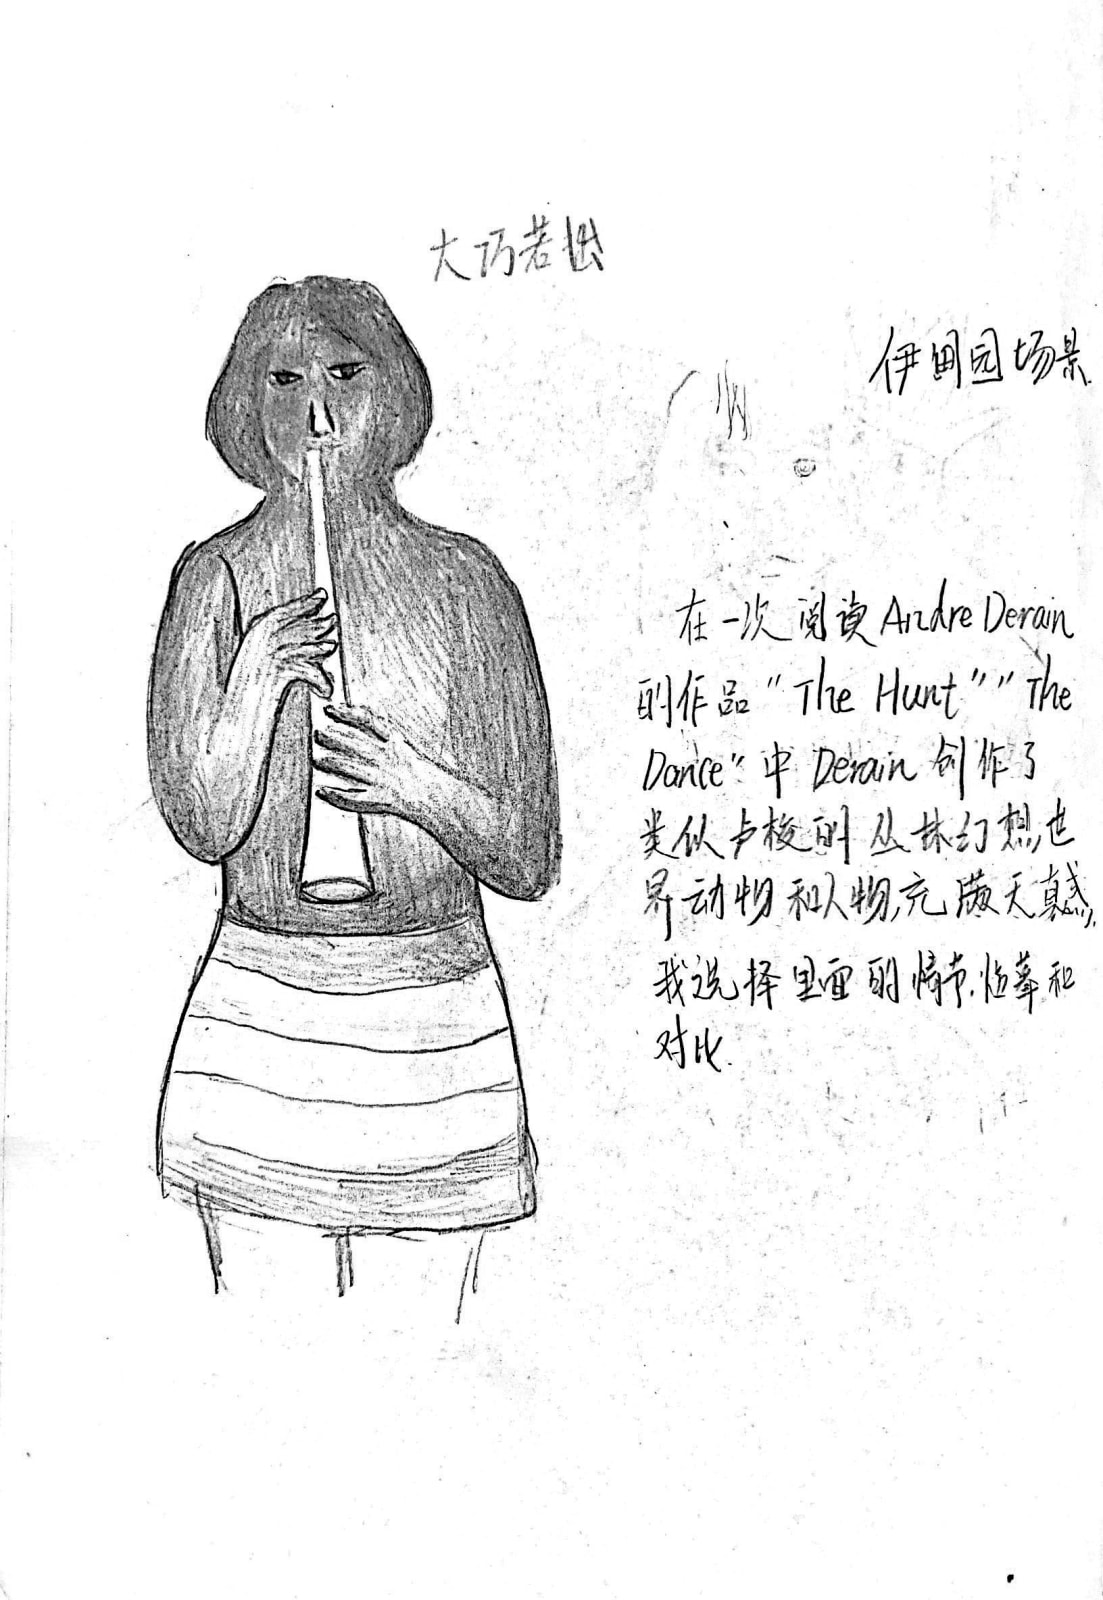 大巧若拙
伊甸园场景
在一次阅读 Andre Derain
的作品 "The Hunt" "The
Dance" 中 Derain 创作了
类似卢梭的丛林幻想世
界动物和人物,充满天真感,
我选择里面的情节.临摹和
对比.